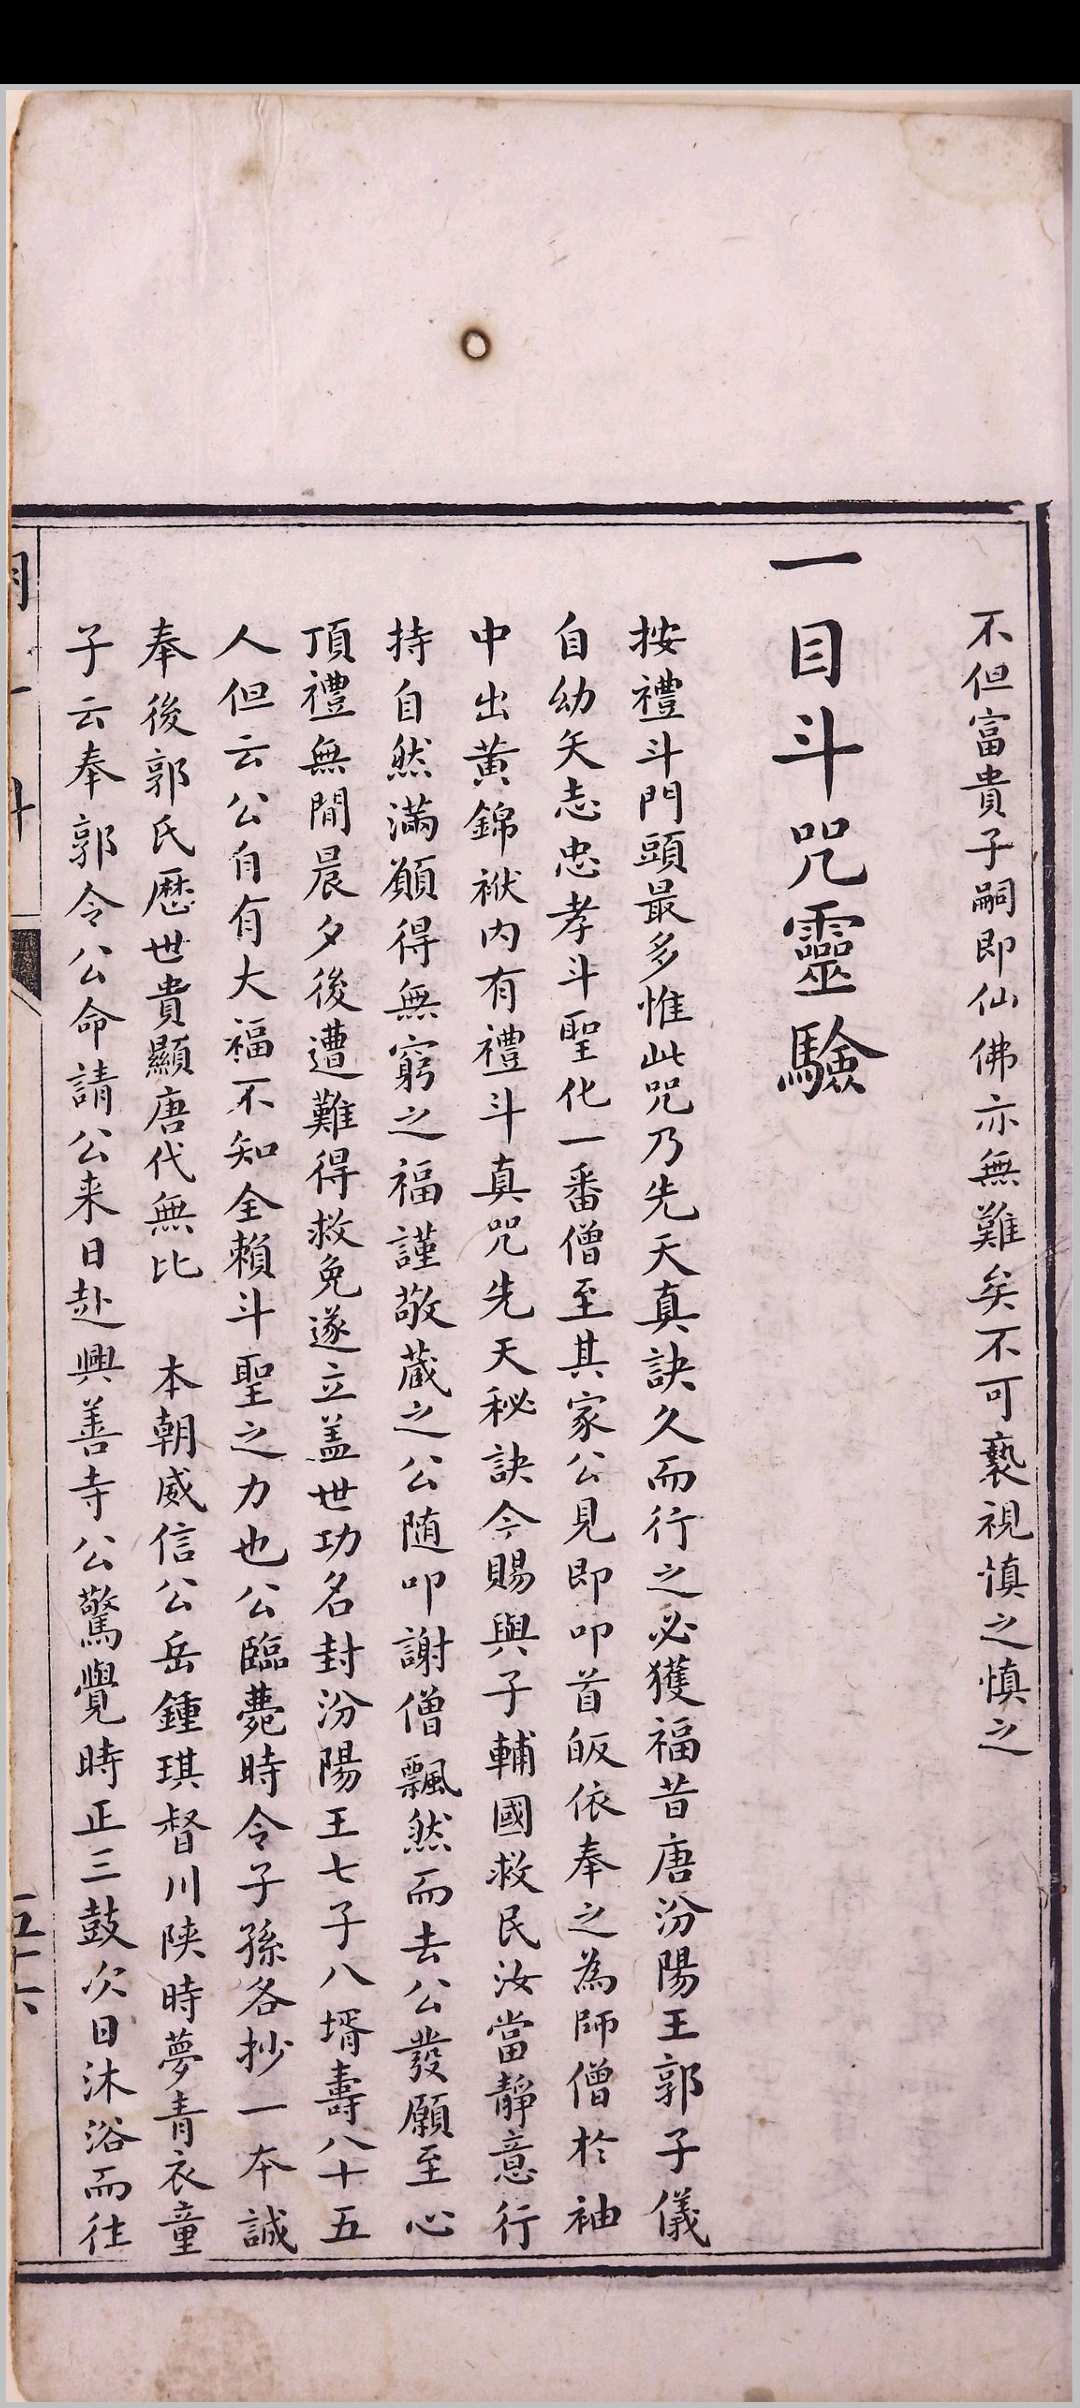 不但富貴子嗣即仙佛亦無難矣不可褻視慎之慎之
一目斗咒靈驗
按禮斗門頭最多惟此咒乃先天真訣久而行之必獲福昔唐汾陽王郭子儀
自幼矢志忠孝斗聖化一番僧至其家公見即叩首皈依奉之為師僧於袖
中出黄錦袱内有禮斗真咒先天秘訣今賜與子輔國救民汝當靜意行
持自然滿願得無窮之福謹敬藏之公随叩謝僧飄然而去公發願至心
頂禮無間晨夕後遭難得救免遂立盖世功名封汾陽王七子八壻壽八十五
人但云公自有大福不知全賴斗聖之力也公臨薨時令子孫各抄一本誠
奉後郭氏歷世貴顯唐代無比　本朝威信公岳鍾琪督川陝時夢青衣童
子云奉郭令公命請公来日赴興善寺公驚覺時正三鼓次日沐浴而往
五十六